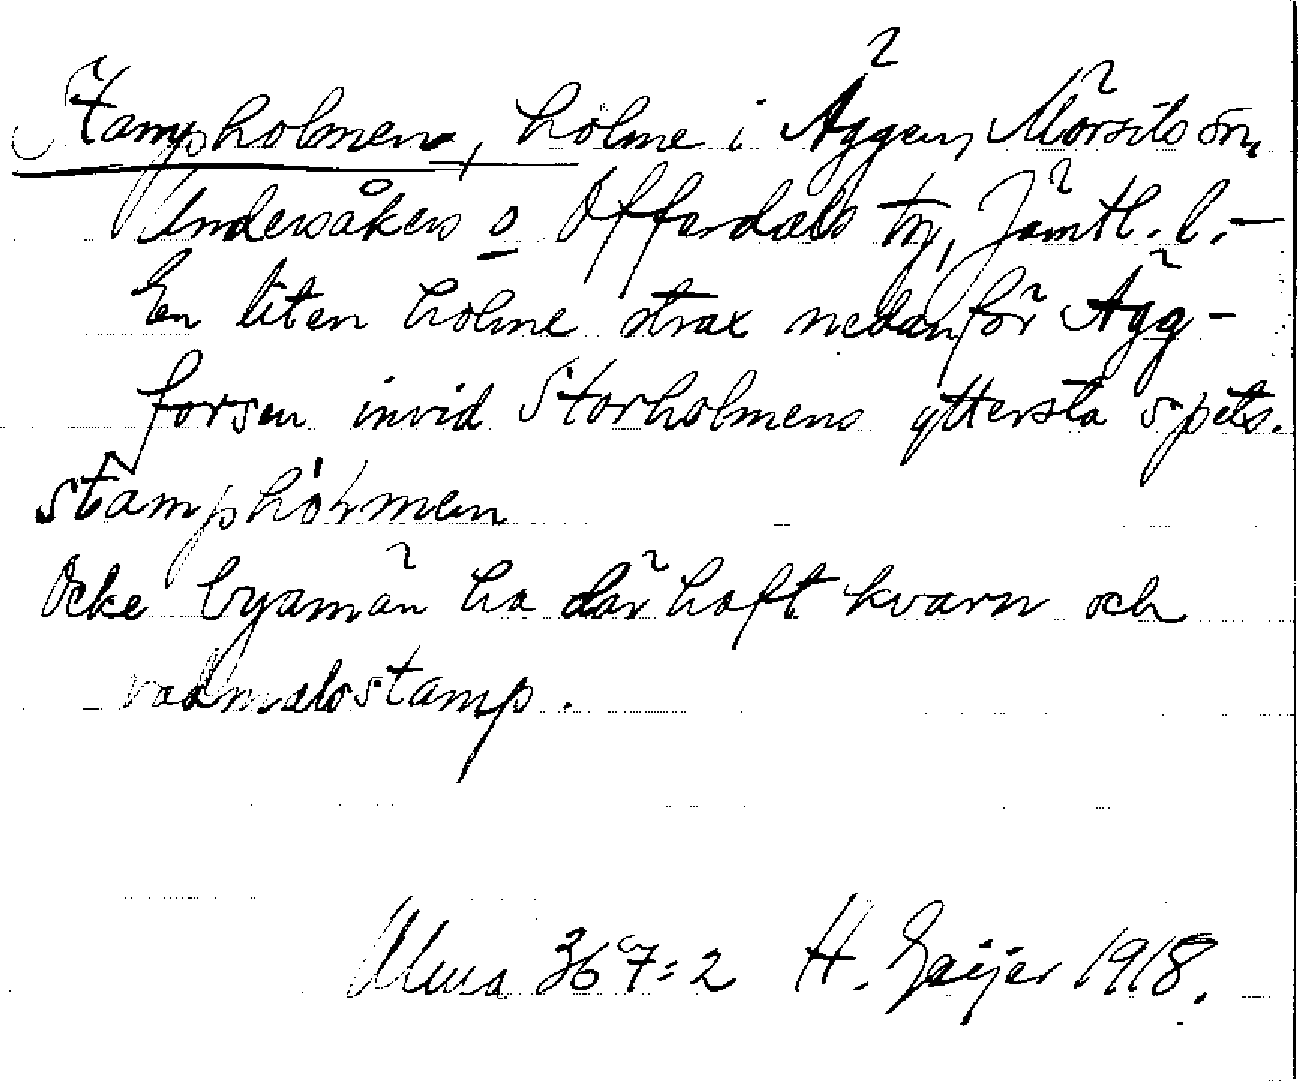 Stampholmen, holme i Äggen, Mörsils sn,
Undersåkers o Offerdals tg, Jämtl. l. –
En liten holme strax nedanför Ägg-
forsen invid Storholmens yttersta spets.
stamphółmen
Ocke byamän ha där haft kvarn och
vadmalsstamp.
Ulma 367:2 H. Geijer 1918.